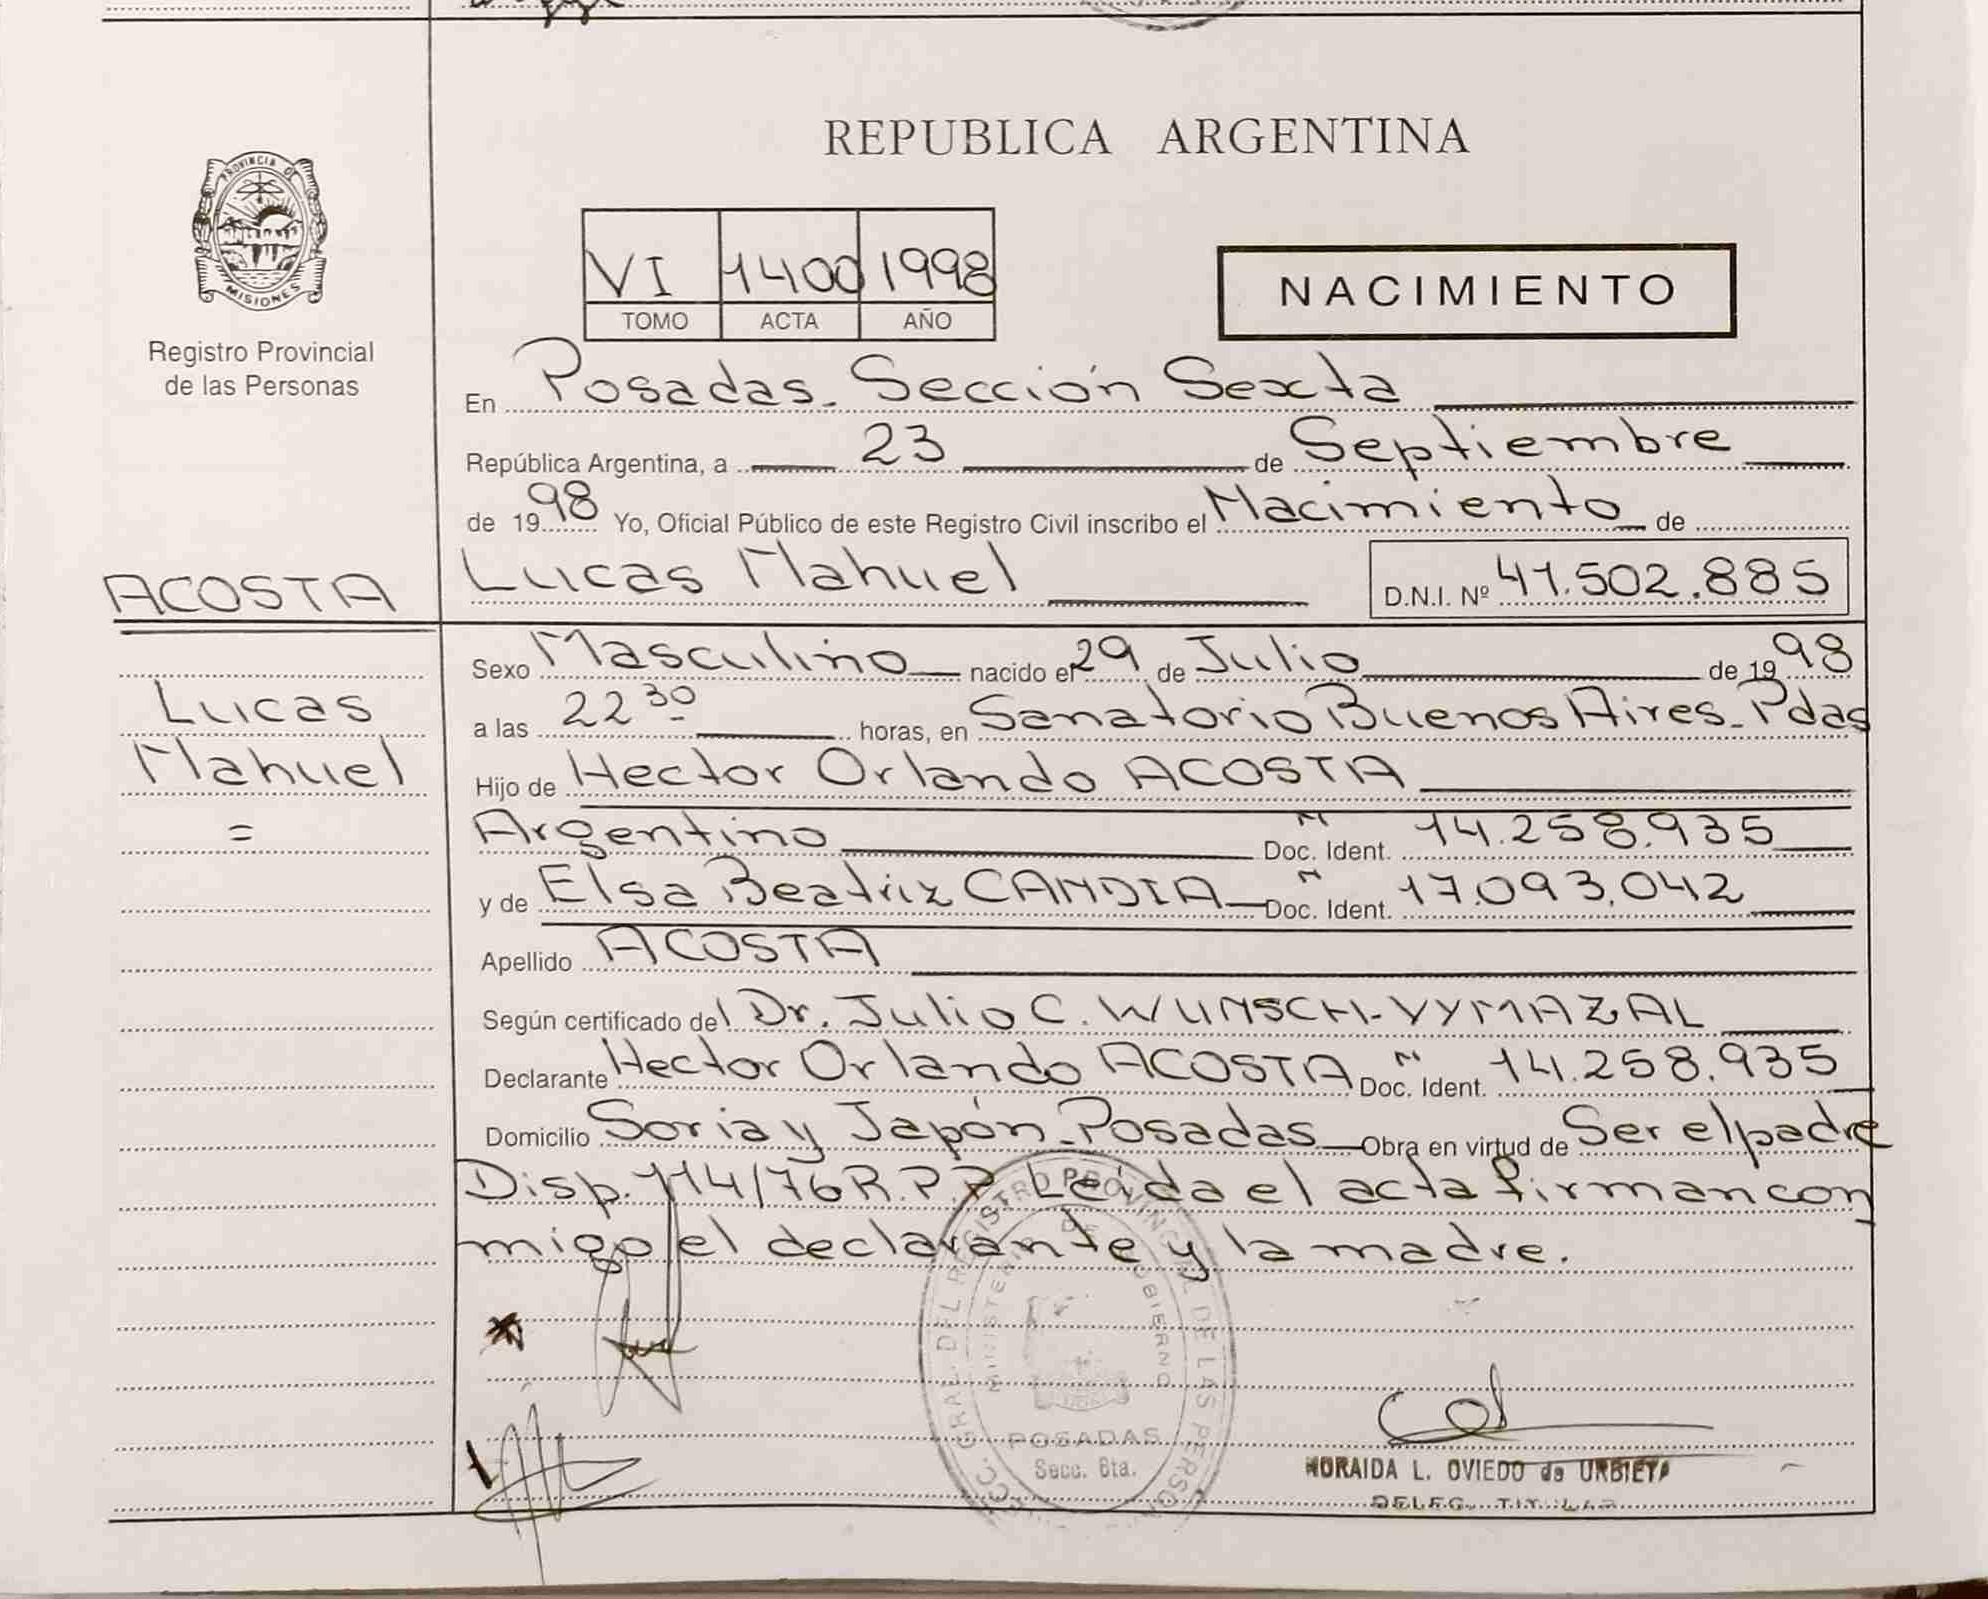 REPUBLICA ARGENTINA
PROVINCIA DE
MISIONES
Registro Provincial
de las Personas
VI 1400 1998
TOMO ACTA AÑO
NACIMIENTO
En Posadas. Sección Sexta
República Argentina, a 23 de Septiembre
de 1998 Yo, Oficial Público de este Registro Civil inscribo el Nacimiento de
ACOSTA
Lucas Nahuel D.N.I. Nº 41.502.885
Sexo Masculino nacido el 29 de Julio de 1998
Lucas
a las 22 30 horas, en Sanatorio Buenos Aires - Pdas
Nahuel
Hijo de Hector Orlando ACOSTA
=
Argentino Doc. Ident. N 14.258.935
y de Elsa Beatriz CANDIA Doc. Ident. N 17.093.042
Apellido ACOSTA
Según certificado del Dr. Julio C. WUNSCH-VYMAZAL
Declarante Hector Orlando ACOSTA Doc. Ident. N 14.258.935
Domicilio Soria y Japón - Posadas Obra en virtud de Ser el padre
Disp. 114/76 R.P.P. Leída el acta firman con
migo el declarante y la madre.
GRAL. DEL REGISTRO PROVINCIAL DE LAS PERSONAS
MINISTERIO DE GOBIERNO
POSADAS
Secc. 6ta.
NORAIDA L. OVIEDO de URBIETA
DELEG. TITULAR